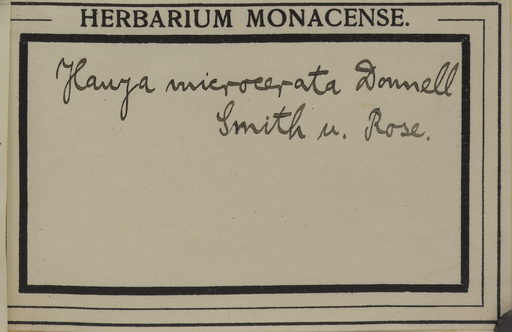 HERBARIUM MONACENSE.
Hauya microcerata Donnell
Smith u. Rose.